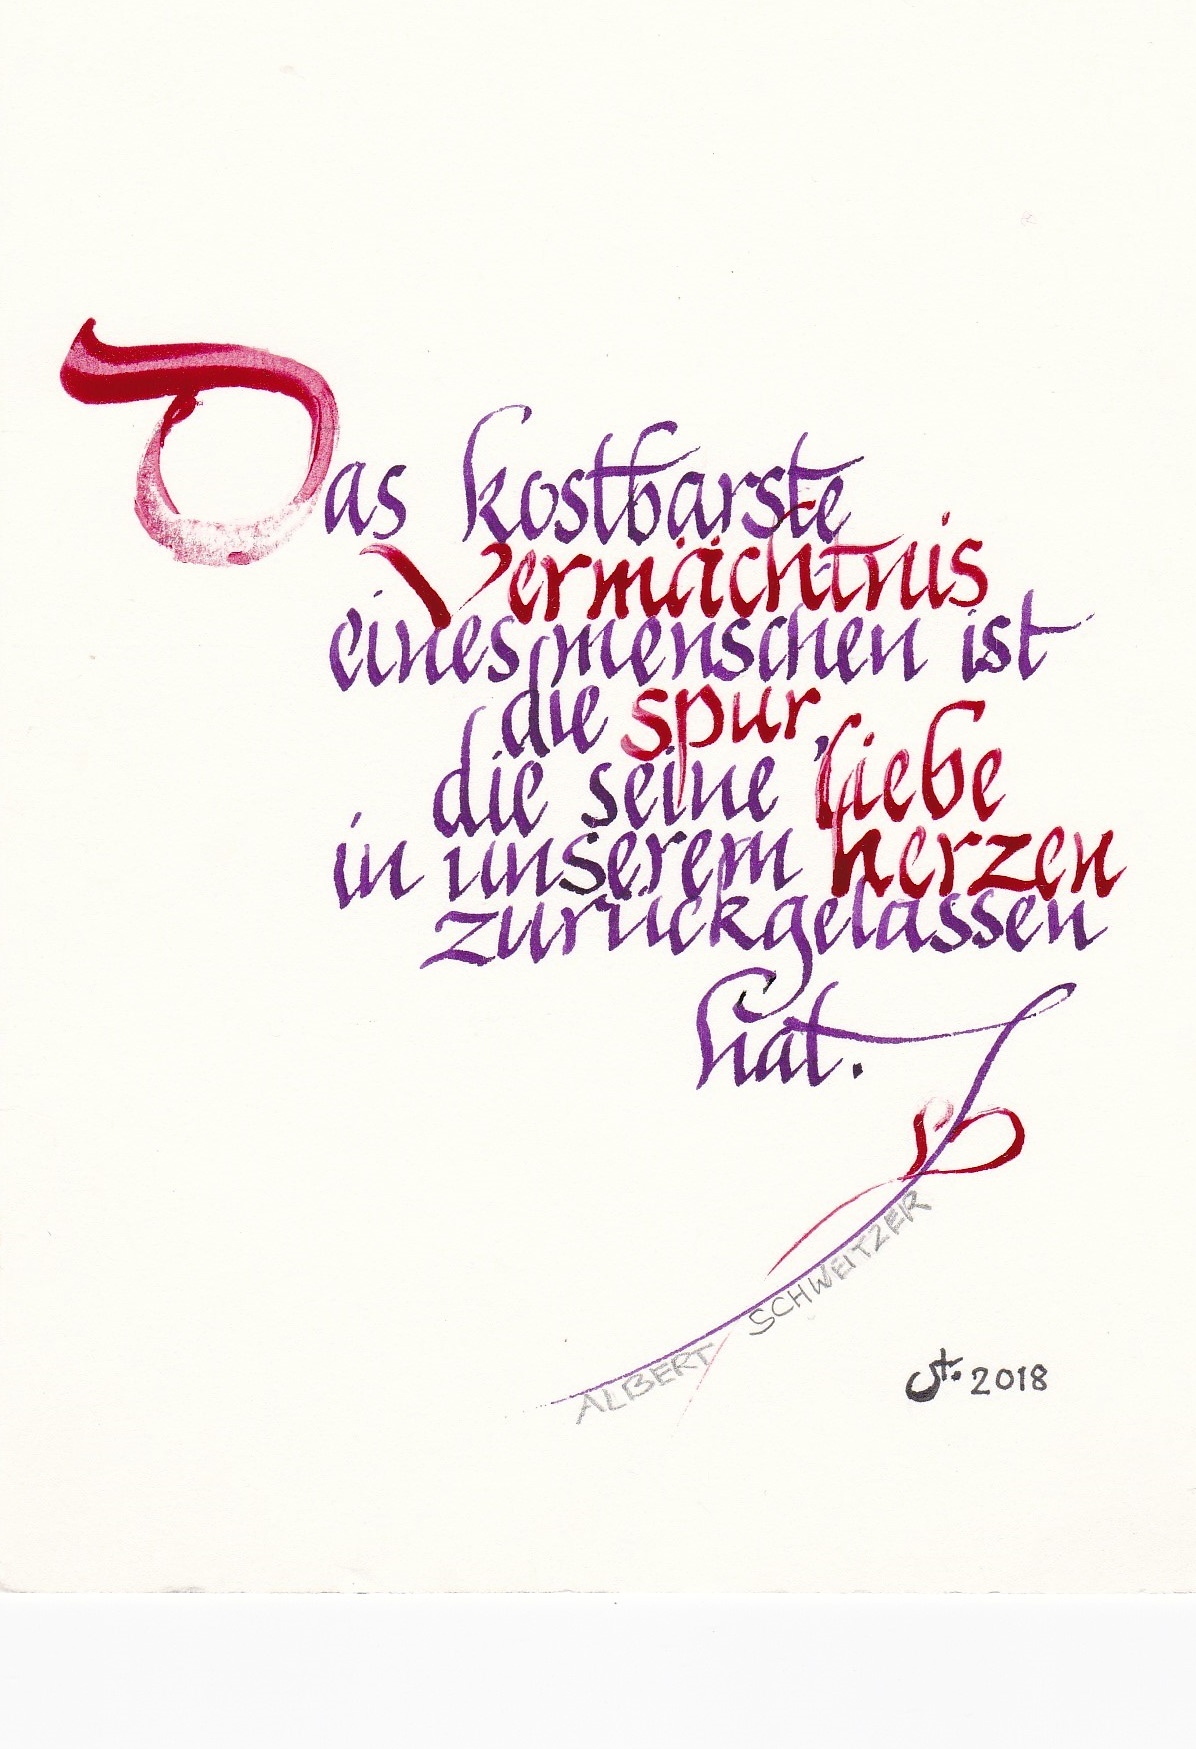 Das kostbarste
Vermächtnis
eines menschen ist
die spur,
die seine liebe
in unserem herzen
zurückgelassen
hat.
ALBERT SCHWEITZER
St. 2018